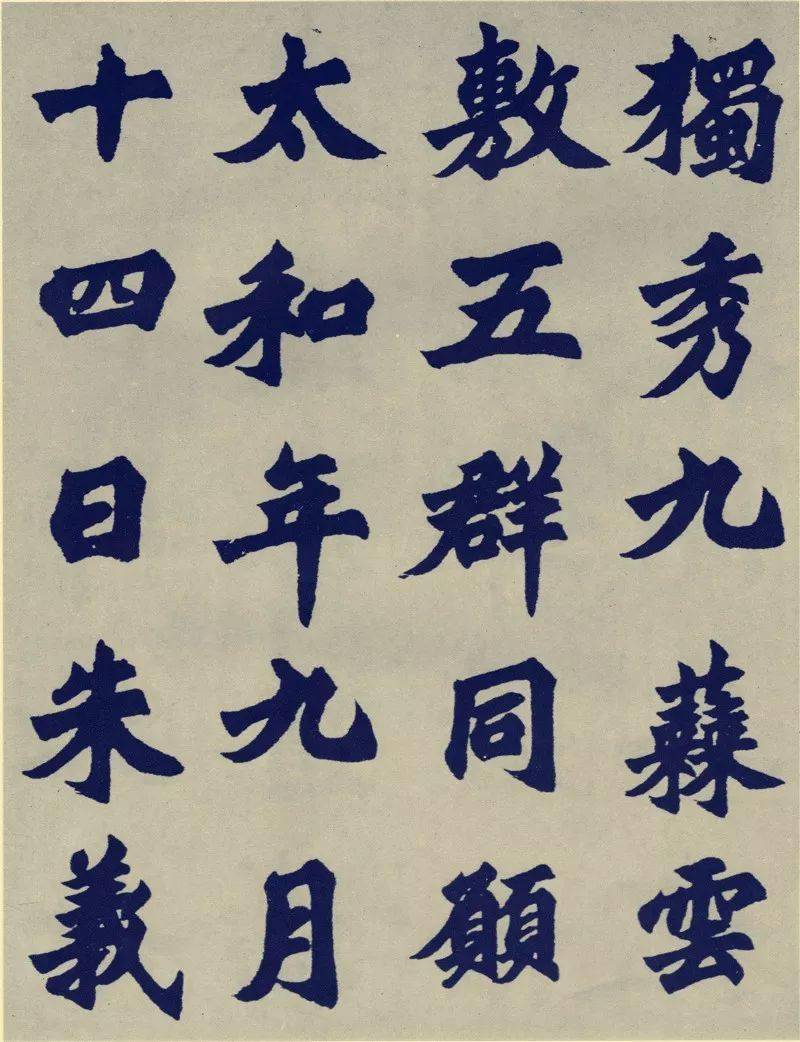 獨秀九蕀雲
敷五群同願
太和年九月
十四日朱義